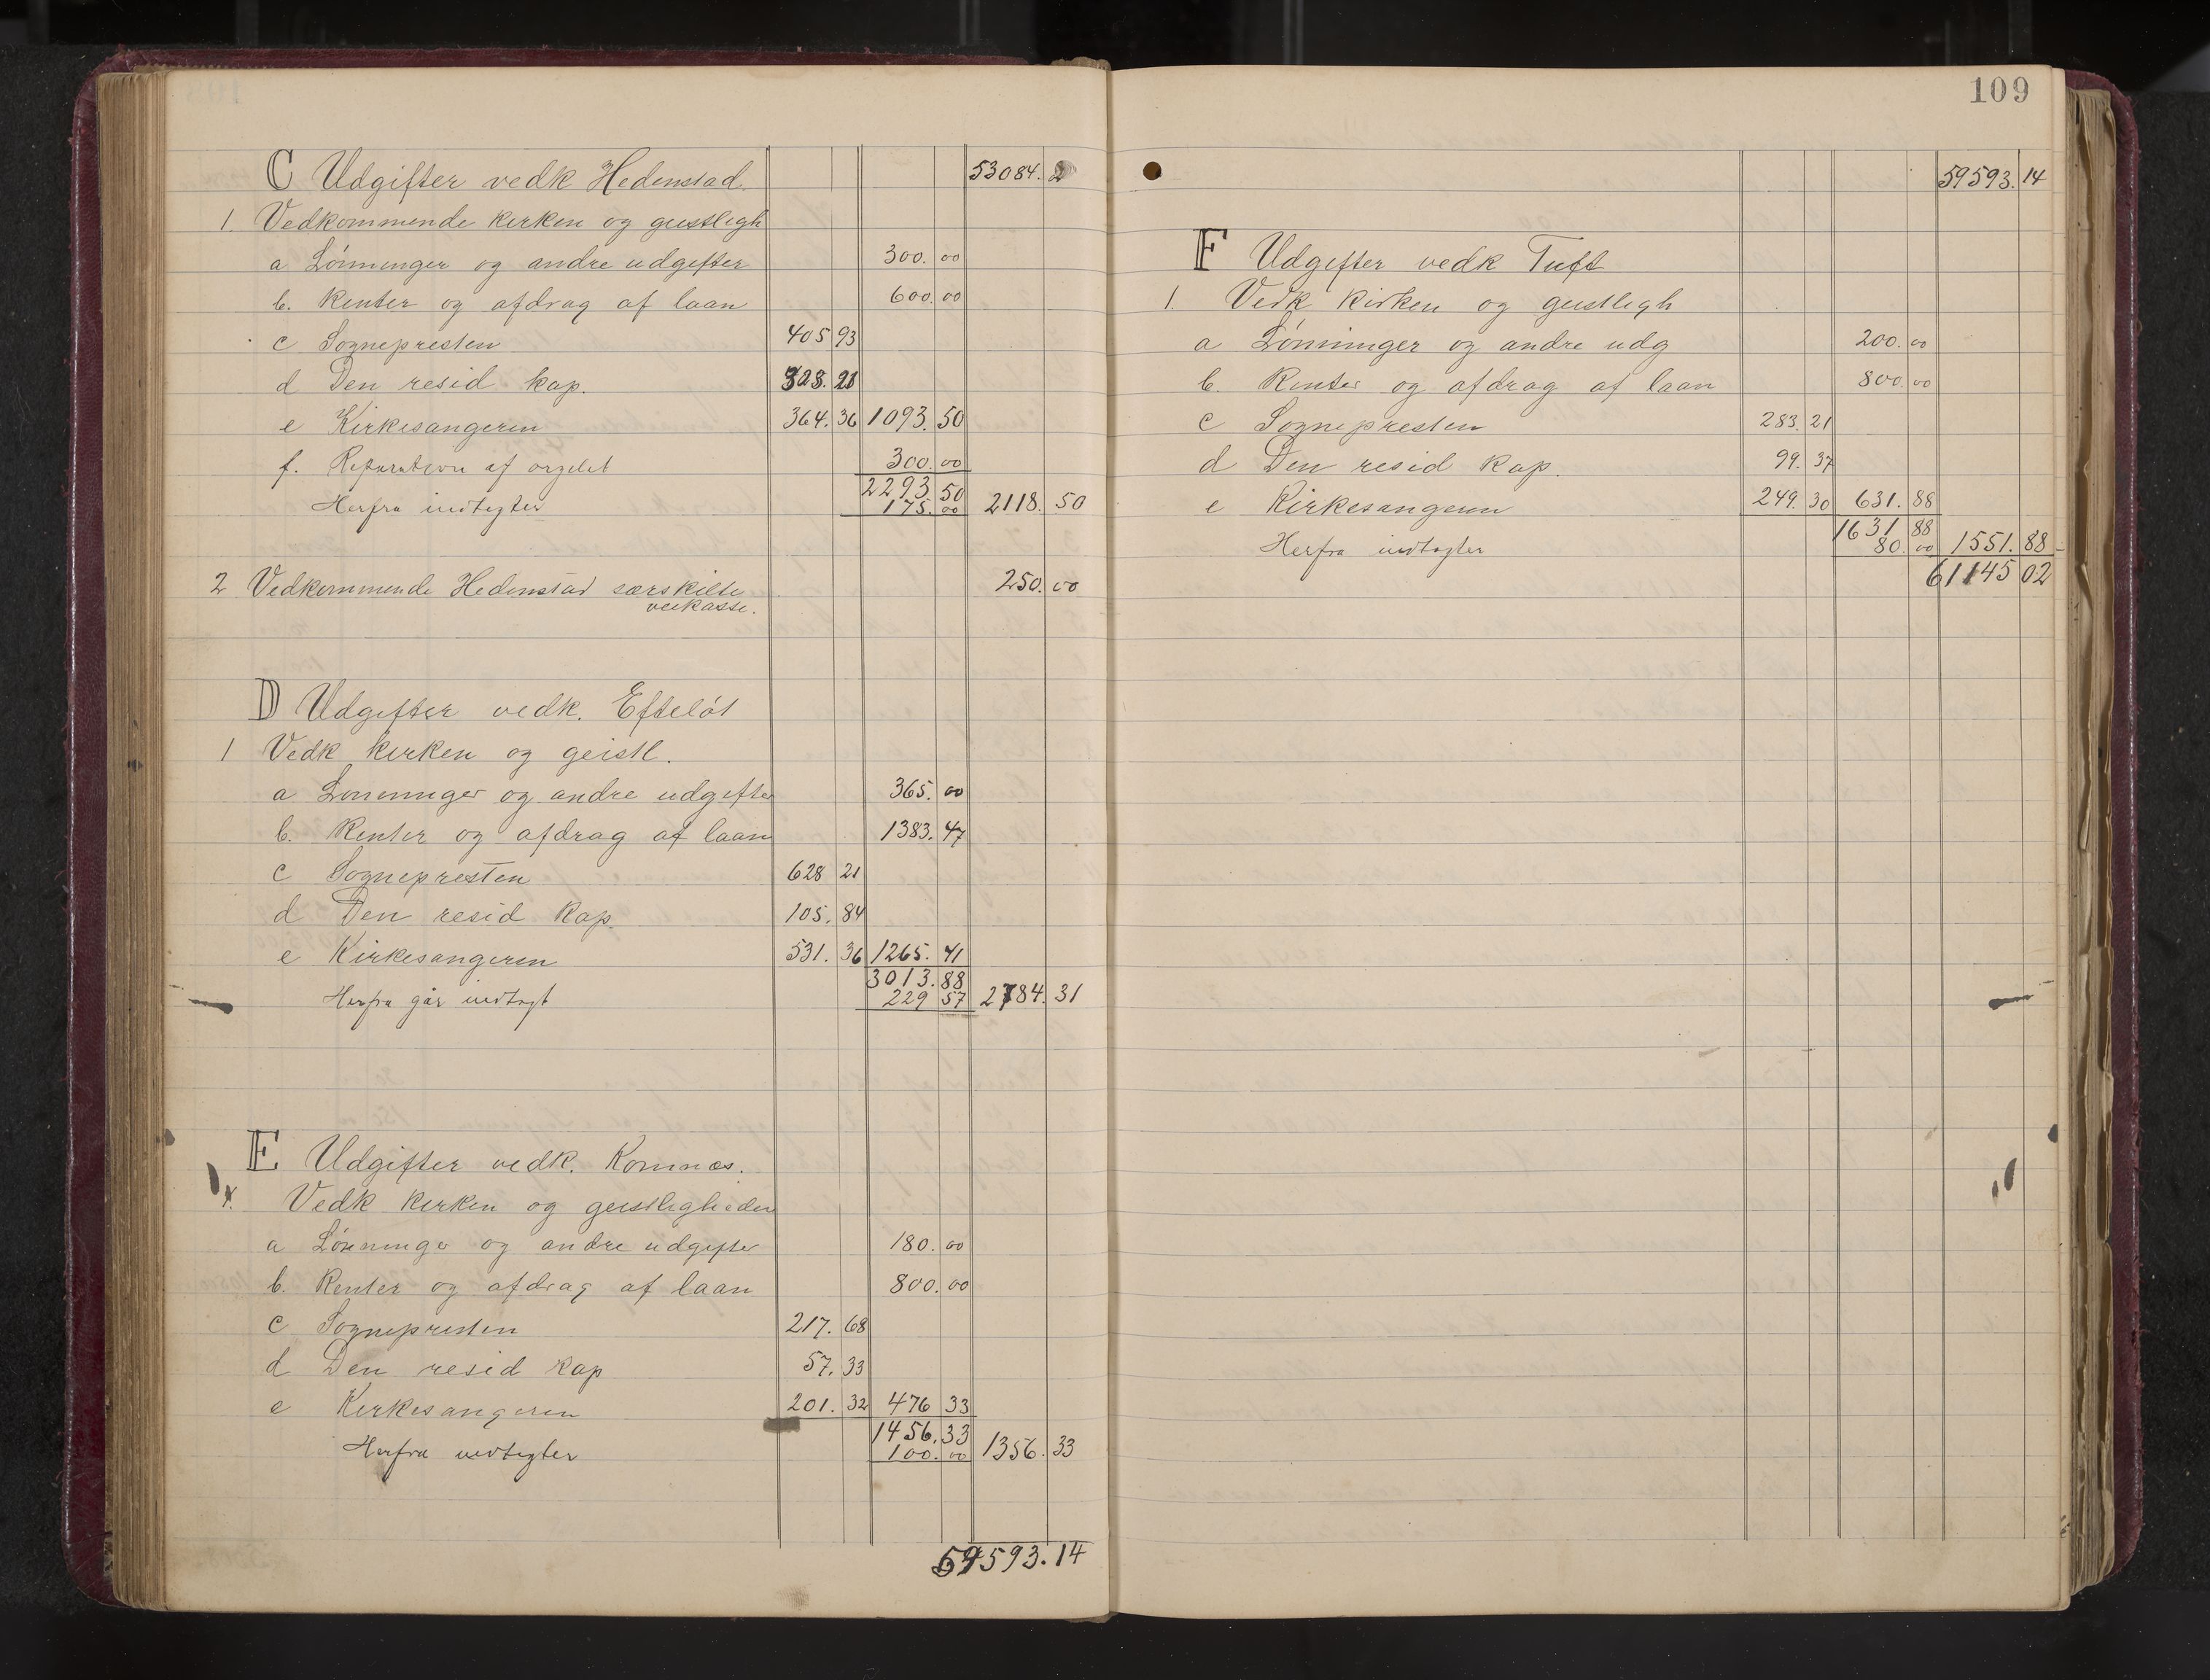 C Udgifter vedk Hedenstad. 53084. 2
1. Vedkommende kirken og geistligh
a Lønninger og andre udgifter 300. 00
b. Renter og afdrag af laan 600. 00
c Sognepresten 405 93
d Den resid kap. 323. 21
e Kirkesangeren 364. 36 1093. 50
f. Reparation af orgelet 300. 00
2293. 50
Herfra indtægter 175. 00 2118. 50
2 Vedkommende Hedenstad særskilte 250. 00
veikasse.
D Udgifter vedk. Efteløt
1 Vedk kirken og geistl.
a Lønninger og andre udgifter 365. 00
b. Renter og afdrag af laan 1383. 47
c Sognepresten 628 21
d Den resid kap. 105. 84
e Kirkesangeren 531. 36 1265. 41
3013. 88
Herfra går indtægt 229 57 2784. 31
E Udgifter vedk. Komnæs.
1. Vedk kirken og geistligheden
a Lønninger og andre udgifter 180. 00
b. Renter og afdrag af laan 800. 00
c Sognepresten 217. 68
d Den resid kap 57. 33
e Kirkesangeren 201. 32 476 33
1456. 33
Herfra indtægter 100. 00 1356. 33
59593. 14
109
59593. 14
F Udgifter vedk Tuft
1. Vedk kirken og geistligh
a Lønninger og andre udg 200. 00
b. Renter og afdrag af laan 800. 00
c Sognepresten 283. 21
d Den resid kap. 99. 37
e Kirkesangeren 249. 30 631. 88
1631 88
Herfra indtægter 80. 00 1551. 88
61145 02